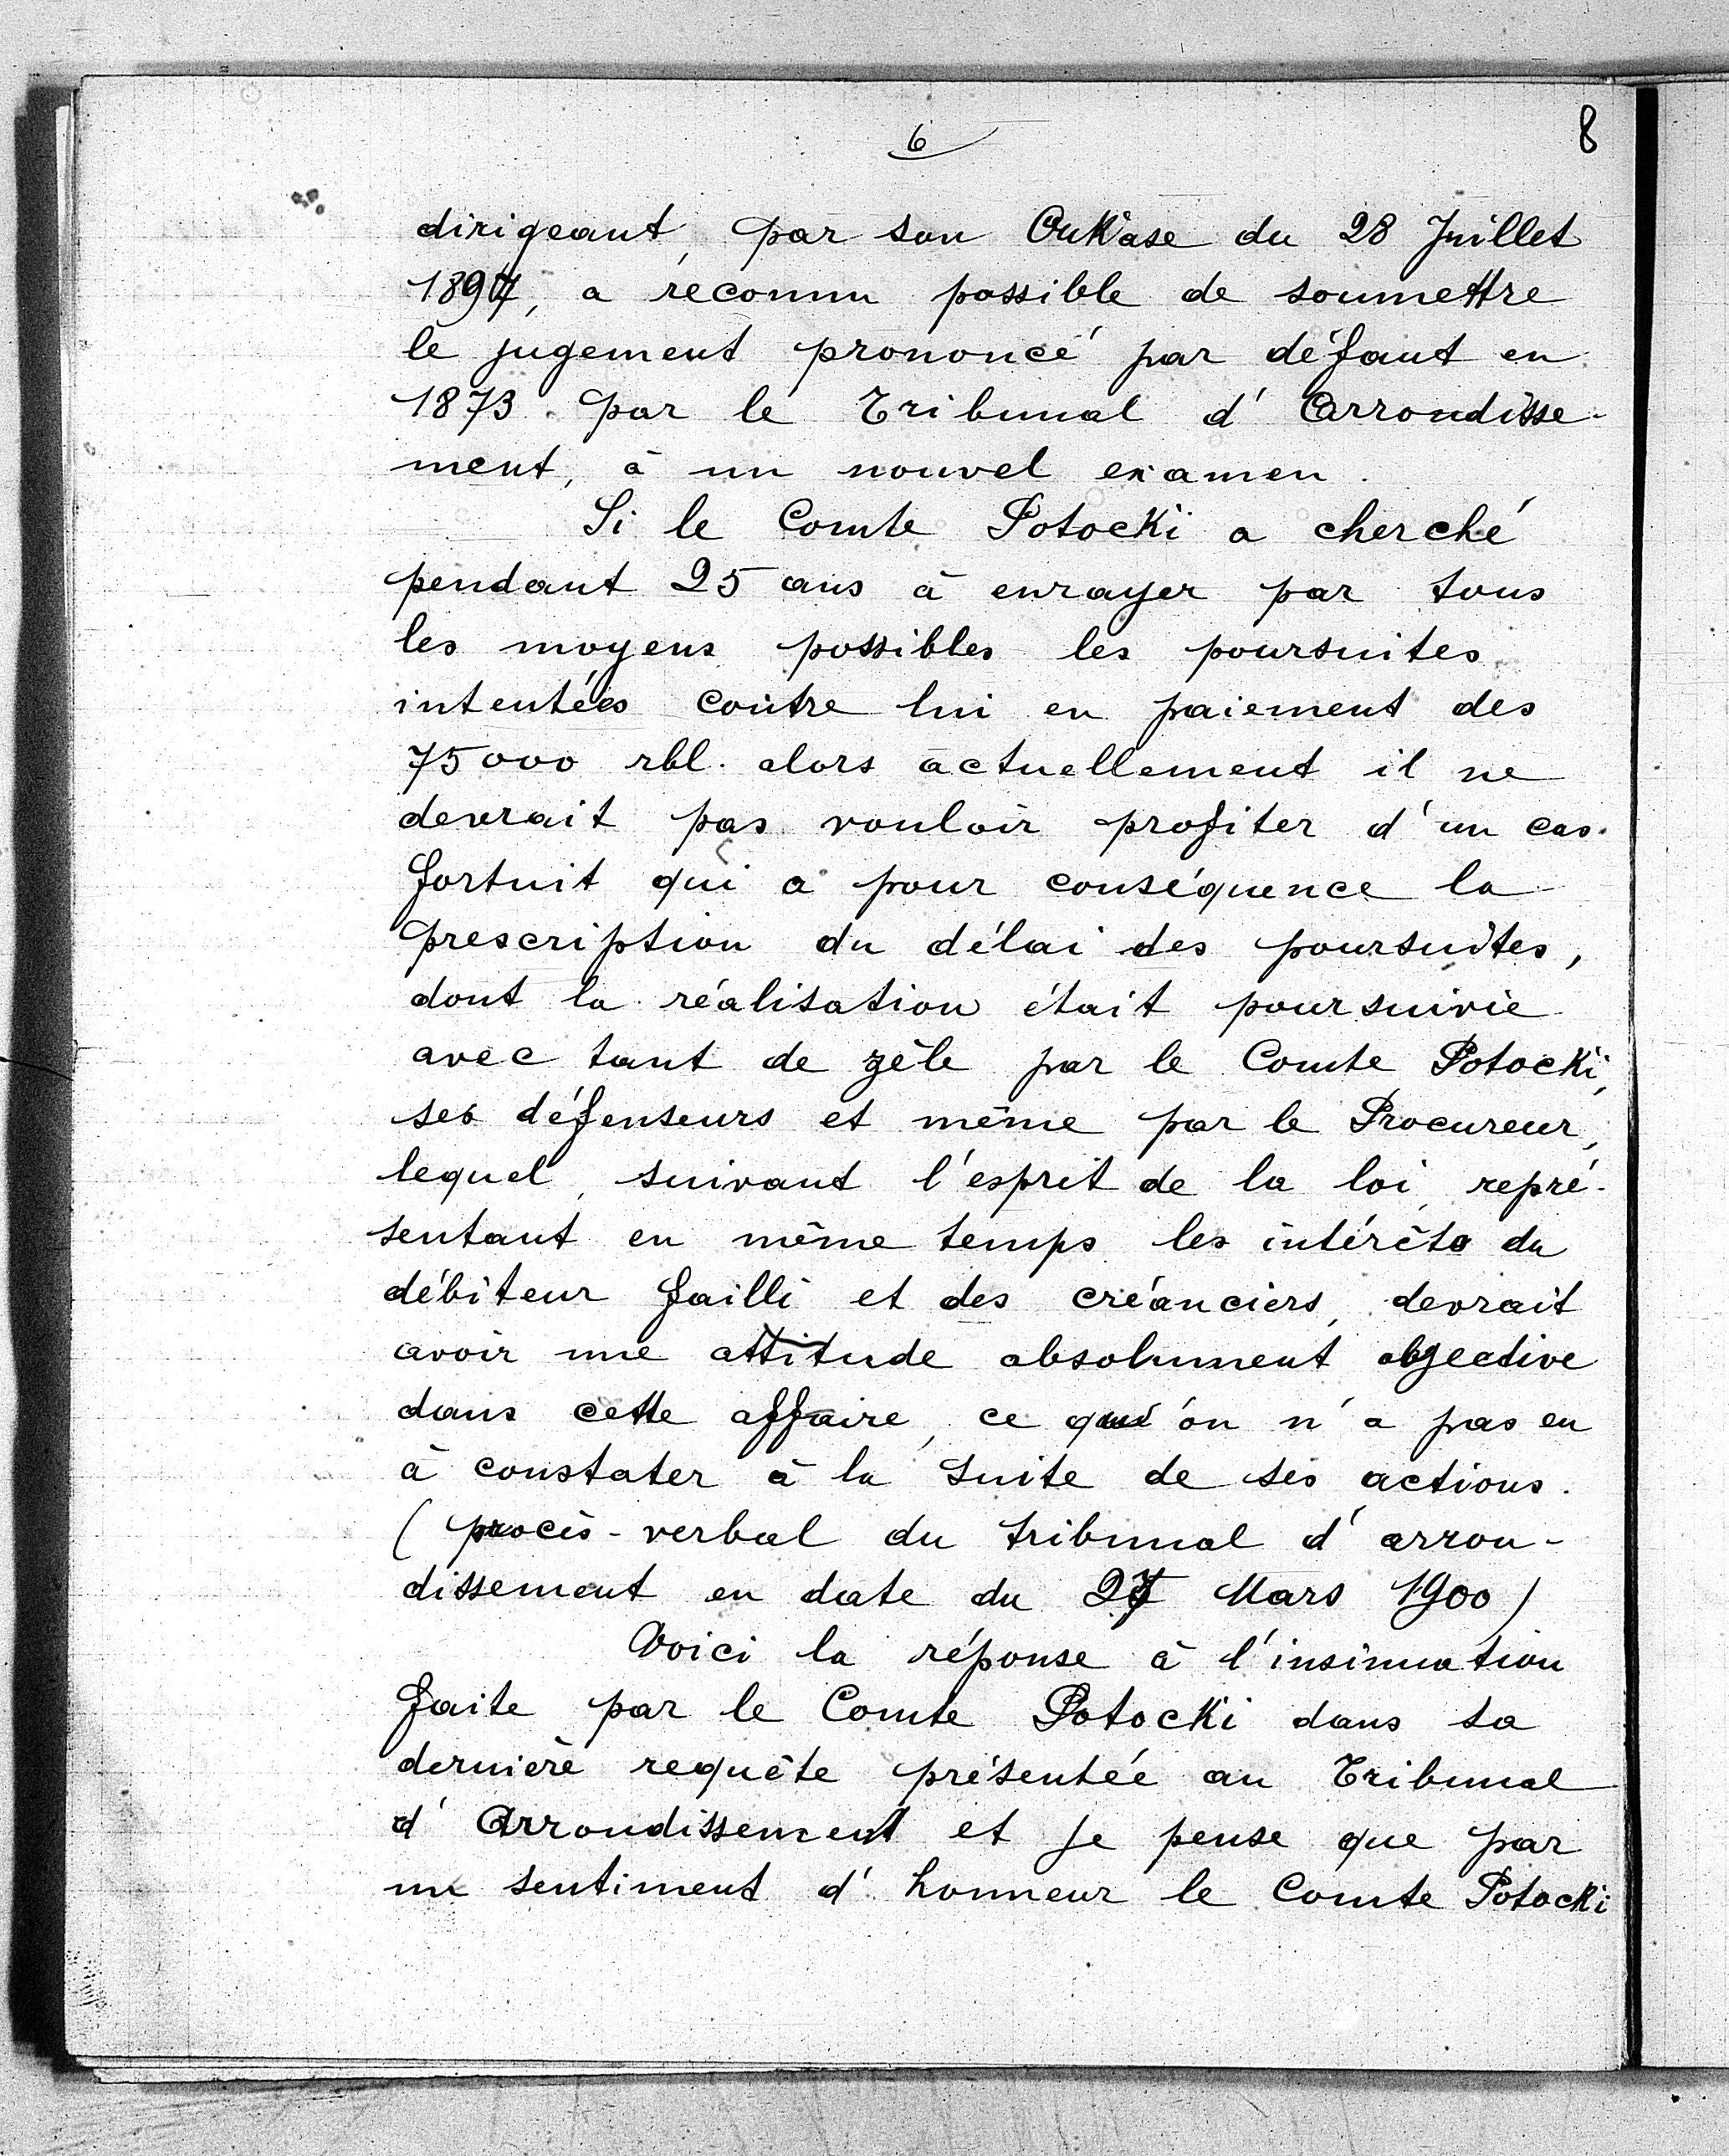 6
8
dirigeant, par son Oukase du 28 Juillet
1897, a reconnu possible de soumettre
le jugement prononcé par défaut en
1873 par le Tribunal d'Arrondisse-
ment, à un nouvel examen.
Si le Comte Potocki a cherché
pendant 25 ans à enrayer par tous
les moyens possibles les poursuites
intentées contre lui en paiement des
75000 rbl. alors actuellement il ne
devrait pas vouloir profiter d'un cas
fortuit qui a pour conséquence la
prescription du délai des poursuites,
dont la réalisation était poursuivie
avec tant de zèle par le Comte Potocki,
ses défenseurs et même par le Procureur,
lequel, suivant l'esprit de la loi, repré-
sentant en même temps les intérêts du
débiteur failli et des créanciers, devrait
avoir une attitude absolument objective
dans cette affaire, ce qu'on n'a pas eu
à constater à la suite de ses actions.
(procès-verbal du tribunal d'arron-
dissement en date du 27 Mars 1900)
Voici la réponse à l'insinuation
faite par le Comte Potocki dans sa
dernière requête présentée au Tribunal
d'Arrondissement et je pense que par
un sentiment d'honneur le Comte Potocki